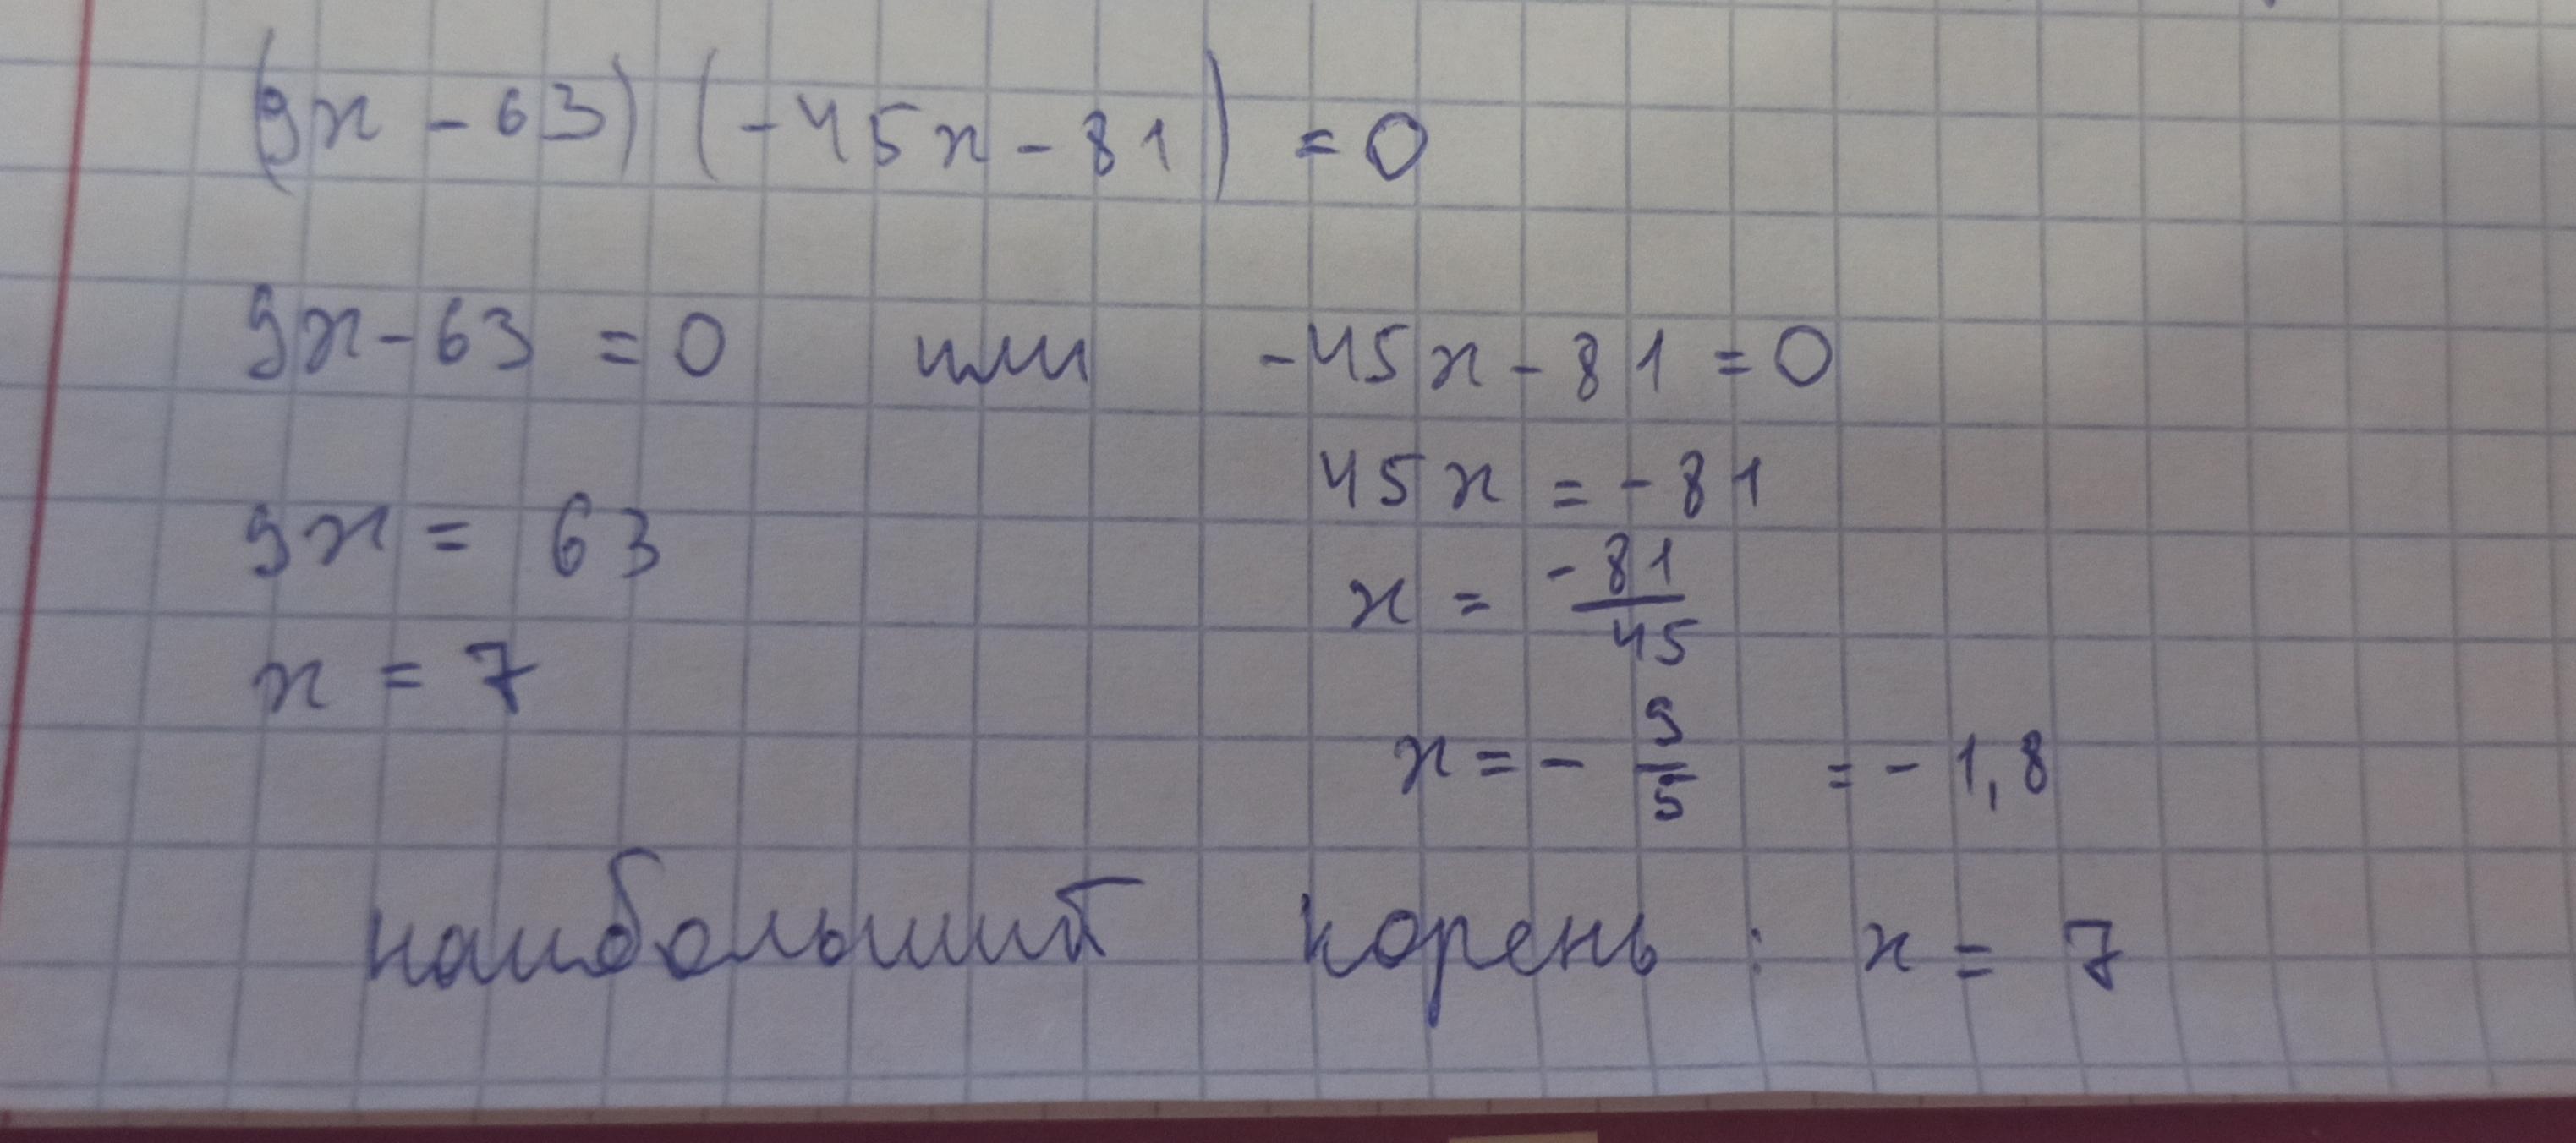 (9x - 63) (-45x - 81) = 0
9x - 63 = 0 или -45x - 81 = 0
45x = -81
9x = 63
x = -81/45
x = 7
x = - 9/5 = - 1,8
наибольший корень : x = 7